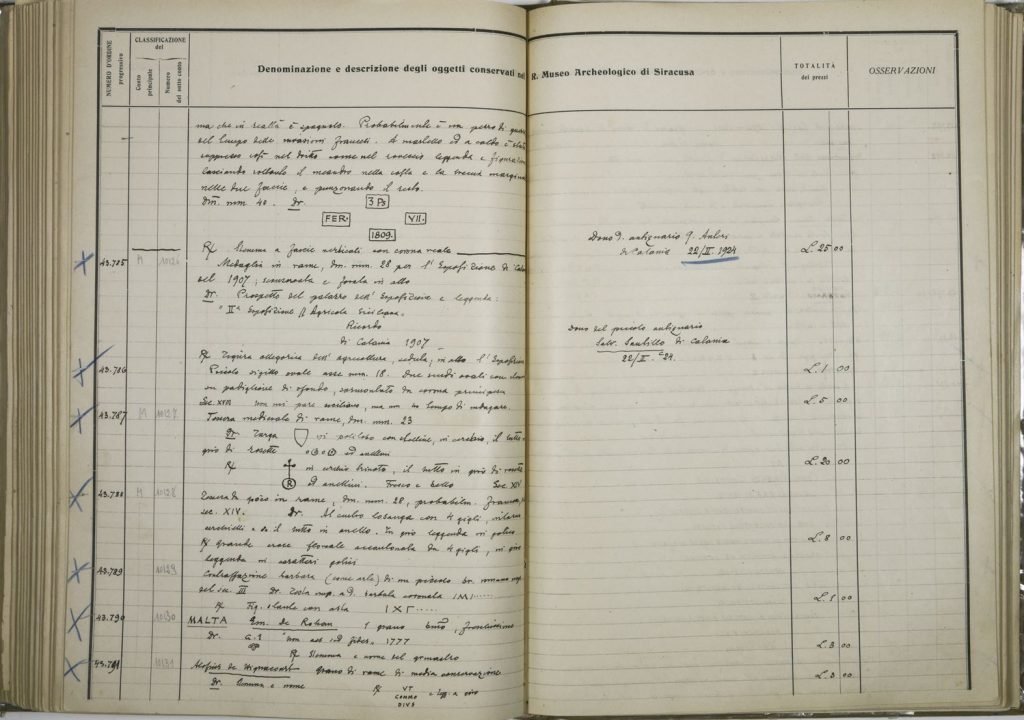 NUMERO D'ORDINE progressivo
CLASSIFICAZIONE
del
Conto principale
Numero del sotto conto
Denominazione e descrizione degli oggetti conservati nel R. Museo Archeologico di Siracusa
TOTALITÀ
dei prezzi
OSSERVAZIONI
ma che in realtà è spagnolo. Probabilmente è un pezzo di
del tempo delle invasioni francesi. A martello ed a caldo è
nel dritto come nel rovescio leggenda e
lasciando soltanto il meandro nella e la
nelle due faccie, e punzonando il resto.
Dm. mm. 40. Dr. 3 Ps
FER. VII.
1809.
R/ Stemma a fascie verticali con corona reale
Dono d. antiquario
di Catania 22/II. 1924
L. 25 00
43.785 M 10126 Medaglia in rame, dm. mm. 28 per l'Esposizione di
del 1907; e forata in alto
Dr. Prospetto del palazzo dell'Esposizione e leggenda:
"IIª Esposizione Agricola Siciliana"
Ricordo
di Catania 1907
Dono del piccolo antiquario
Salv. Santillo di Catania
22/II. 24.
R/ Figura allegorica dell'agricoltura, seduta; in alto l'Esposizione
L. 1 00
43.786 Piccolo sigillo ovale asse mm. 18. Due scudi ovali con
un padiglione di sfondo, sormontato da corona principesca
Sec. XVIII non mi pare siciliano, ma non ho tempo di indagare.
L. 5 00
43.787 M 10127 Tessera medievale di rame, dm. mm. 23
Dr. Targa in polilobo con in cerchio, il tutto
giro di rosette ed anellini
R/ in cerchio trinato, il tutto in giro di rosette
R ed anellini. Fresco e bello Sec. XIV
L. 20 00
43.788 M 10128 Tessera di gioco in rame, dm. mm. 28, probabilm.
sec. XIV. Dr. Al centro losanga con 4 gigli,
il tutto in anello. In giro leggenda in gotico
R/ grande croce floreale accantonata da 4 gigli, in giro
leggenda in caratteri gotici
L. 8 00
43.789 10129 Contraffazione barbara (come arte) di un piccolo br. romano
del sec. III Dr. Testa imp. a d. barbata coronata
R/ Fig. stante con asta
L. 1 00
43.790 10130 MALTA Em. de Rohan 1 grano
Dr. "non aes sed fides" 1777
R/ Stemma e nome del gr. maestro
L. 3 00
43.791 10131 Alofius de Wignacourt grano di rame di media conservazione
Dr. Stemma e nome R/ VT
COMMO
DIVS e legg. a giro
L. 3 00